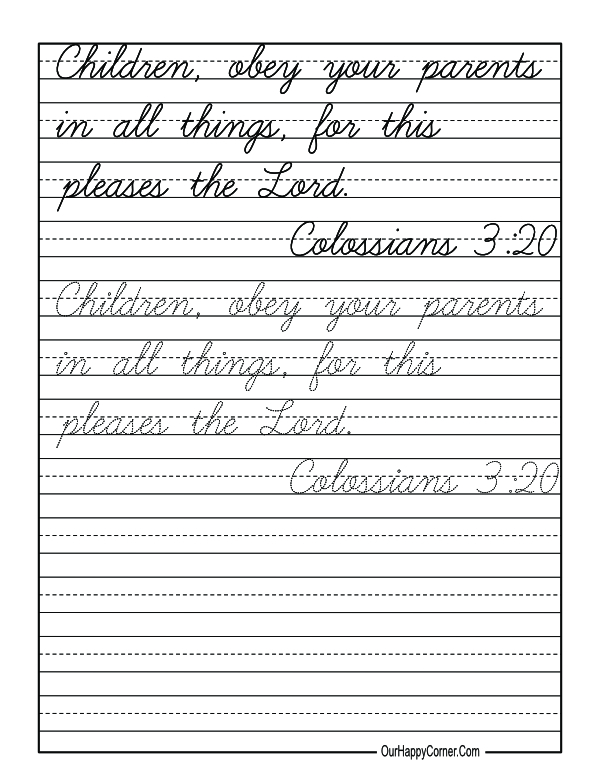 Children, obey your parents
in all things, for this
pleases the Lord.
Colossians 3:20
Children, obey your parents
in all things, for this
pleases the Lord.
Colossians 3:20
OurHappyCorner.Com